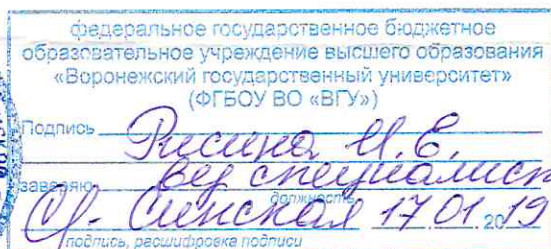 федеральное государственное бюджетное
образовательное учреждение высшего образования
«Воронежский государственный университет»
(ФГБОУ ВО «ВГУ»)
Подпись Рисина И.Е.
заверяю вед специалист
должность
Синская 17.01.2019
подпись, расшифровка подписи